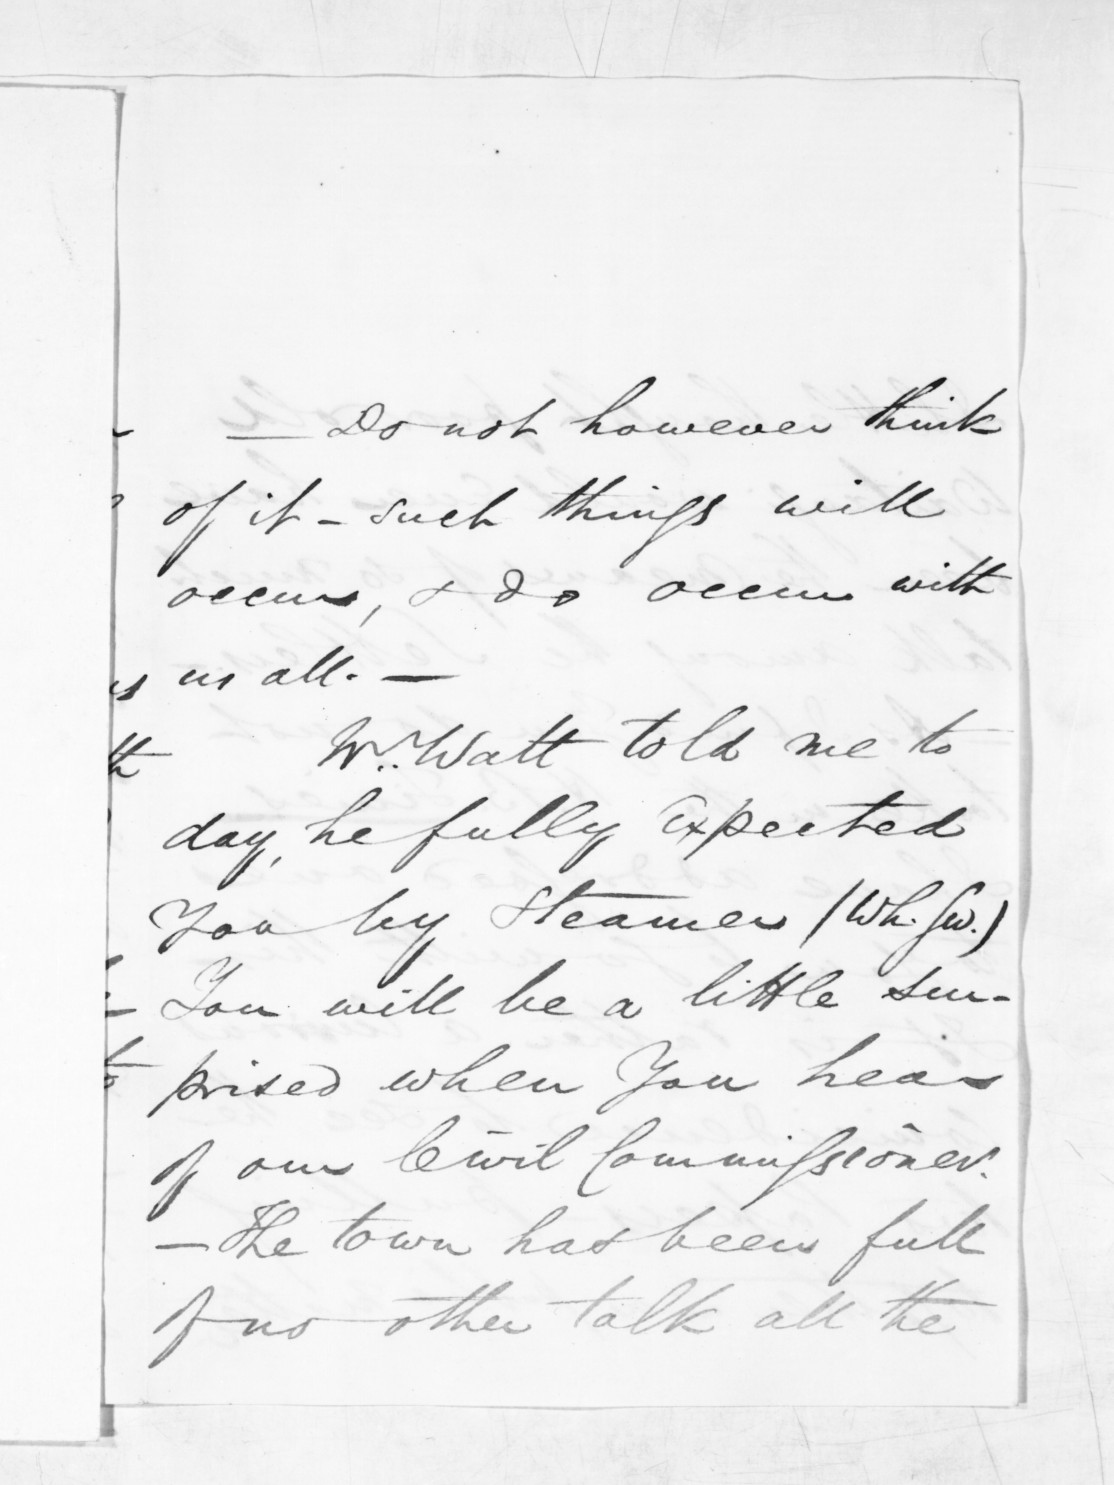 — Do not however think
of it – such things will
occur, & do occur with
us all. —
Wm. Watt told me to
day, he fully expected
You by Steamer
You will be a little sur-
prised when You hear
of our Civil Commissioner.
— The town has been full
of no other talk all the